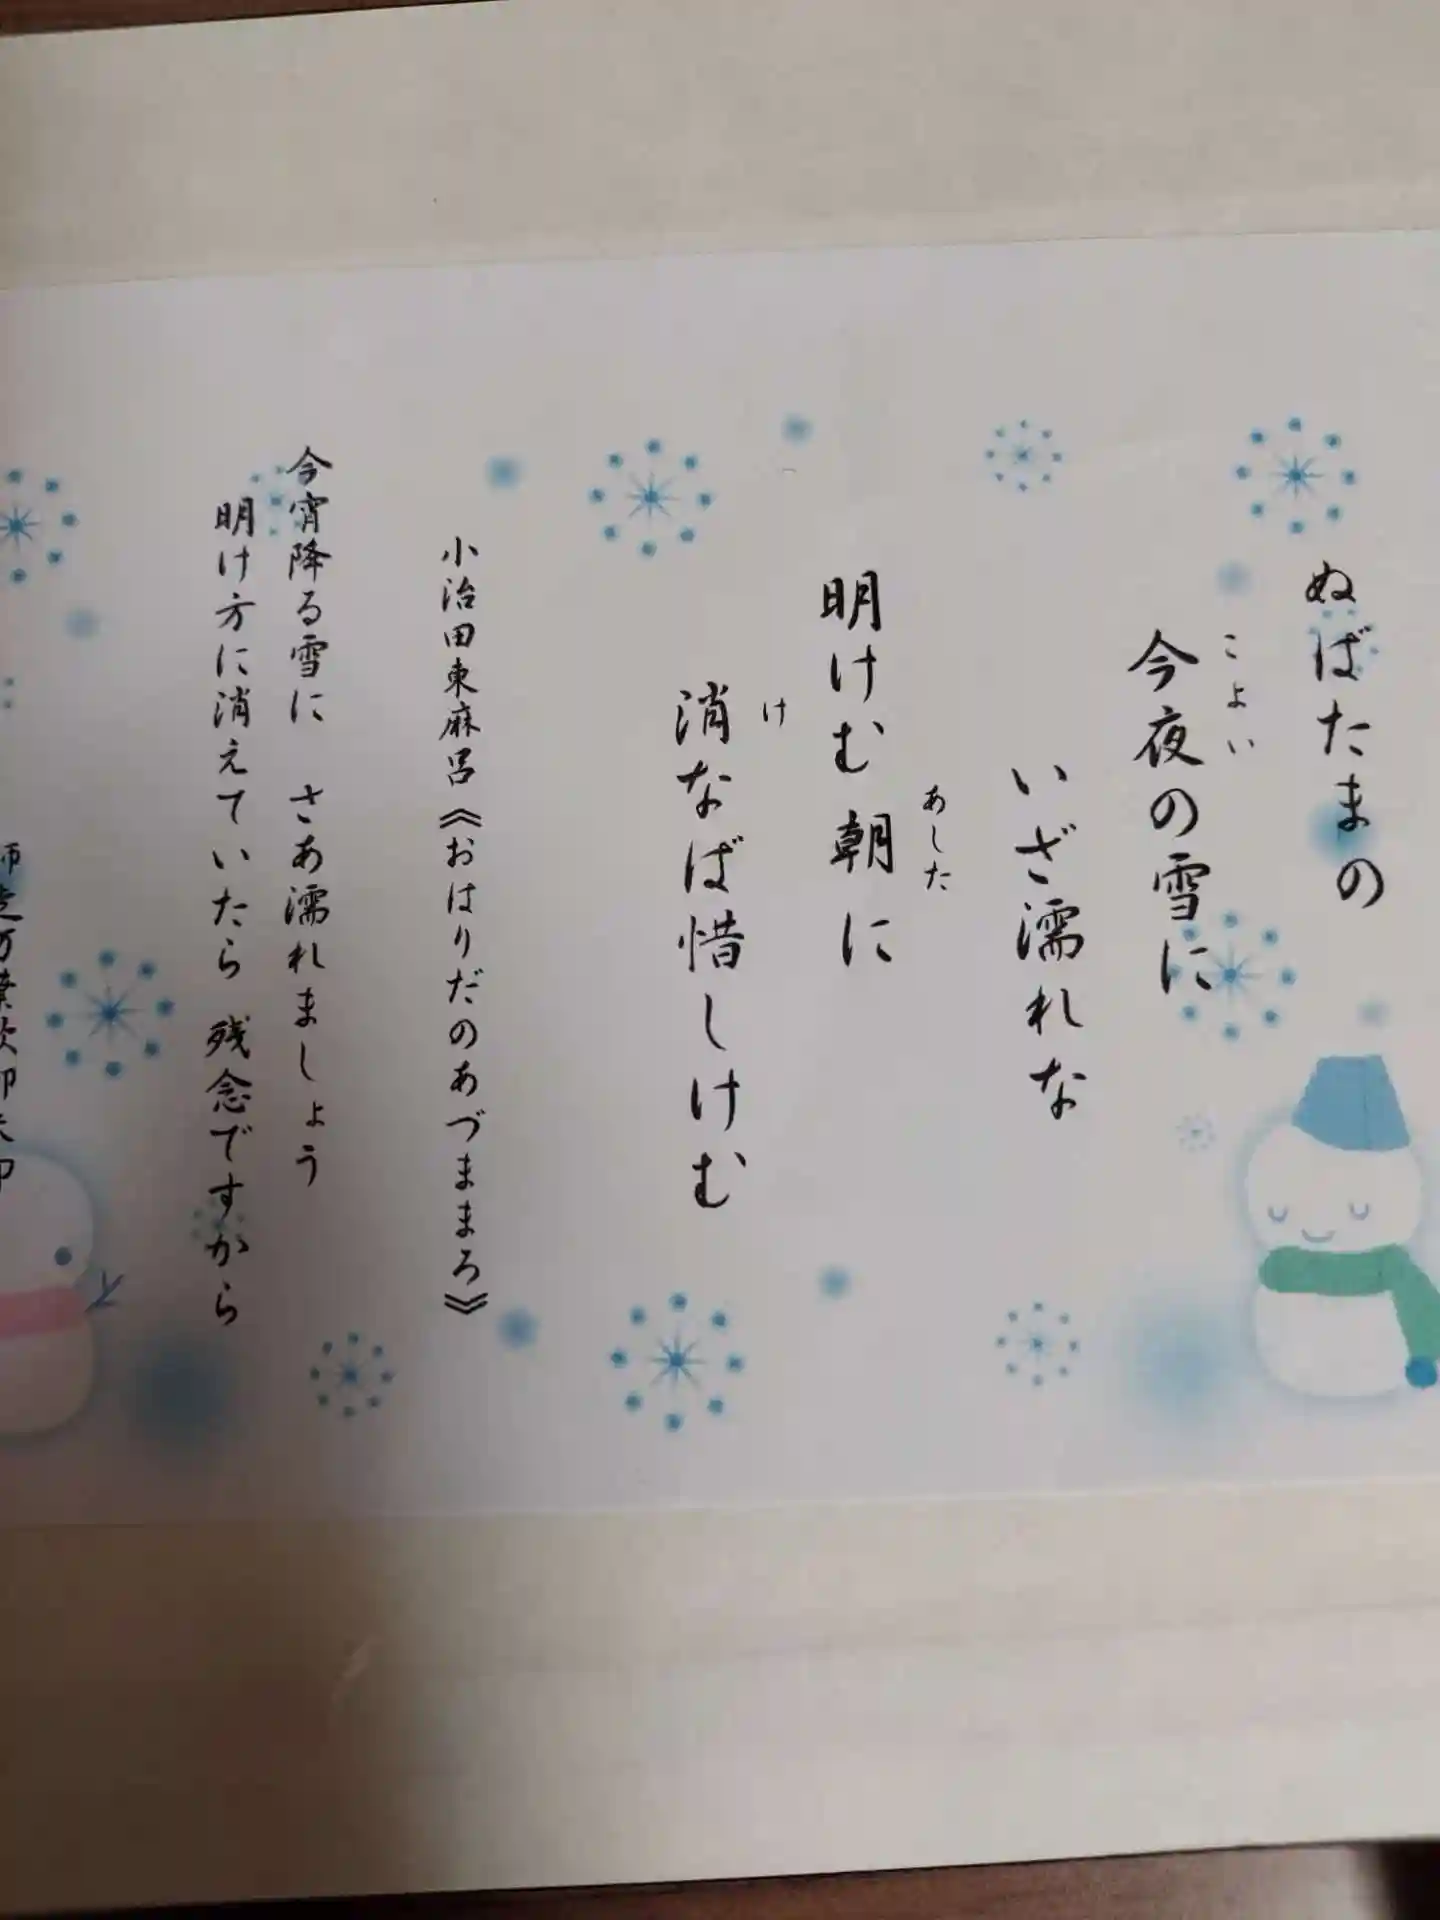 ぬばたまの
こよい
今夜の雪に
いざ濡れな
あした
明けむ朝に
け
消なば惜しけむ
小治田東麻呂《おはりだのあづままろ》
今宵降る雪に さあ濡れましょう
明け方に消えていたら 残念ですから